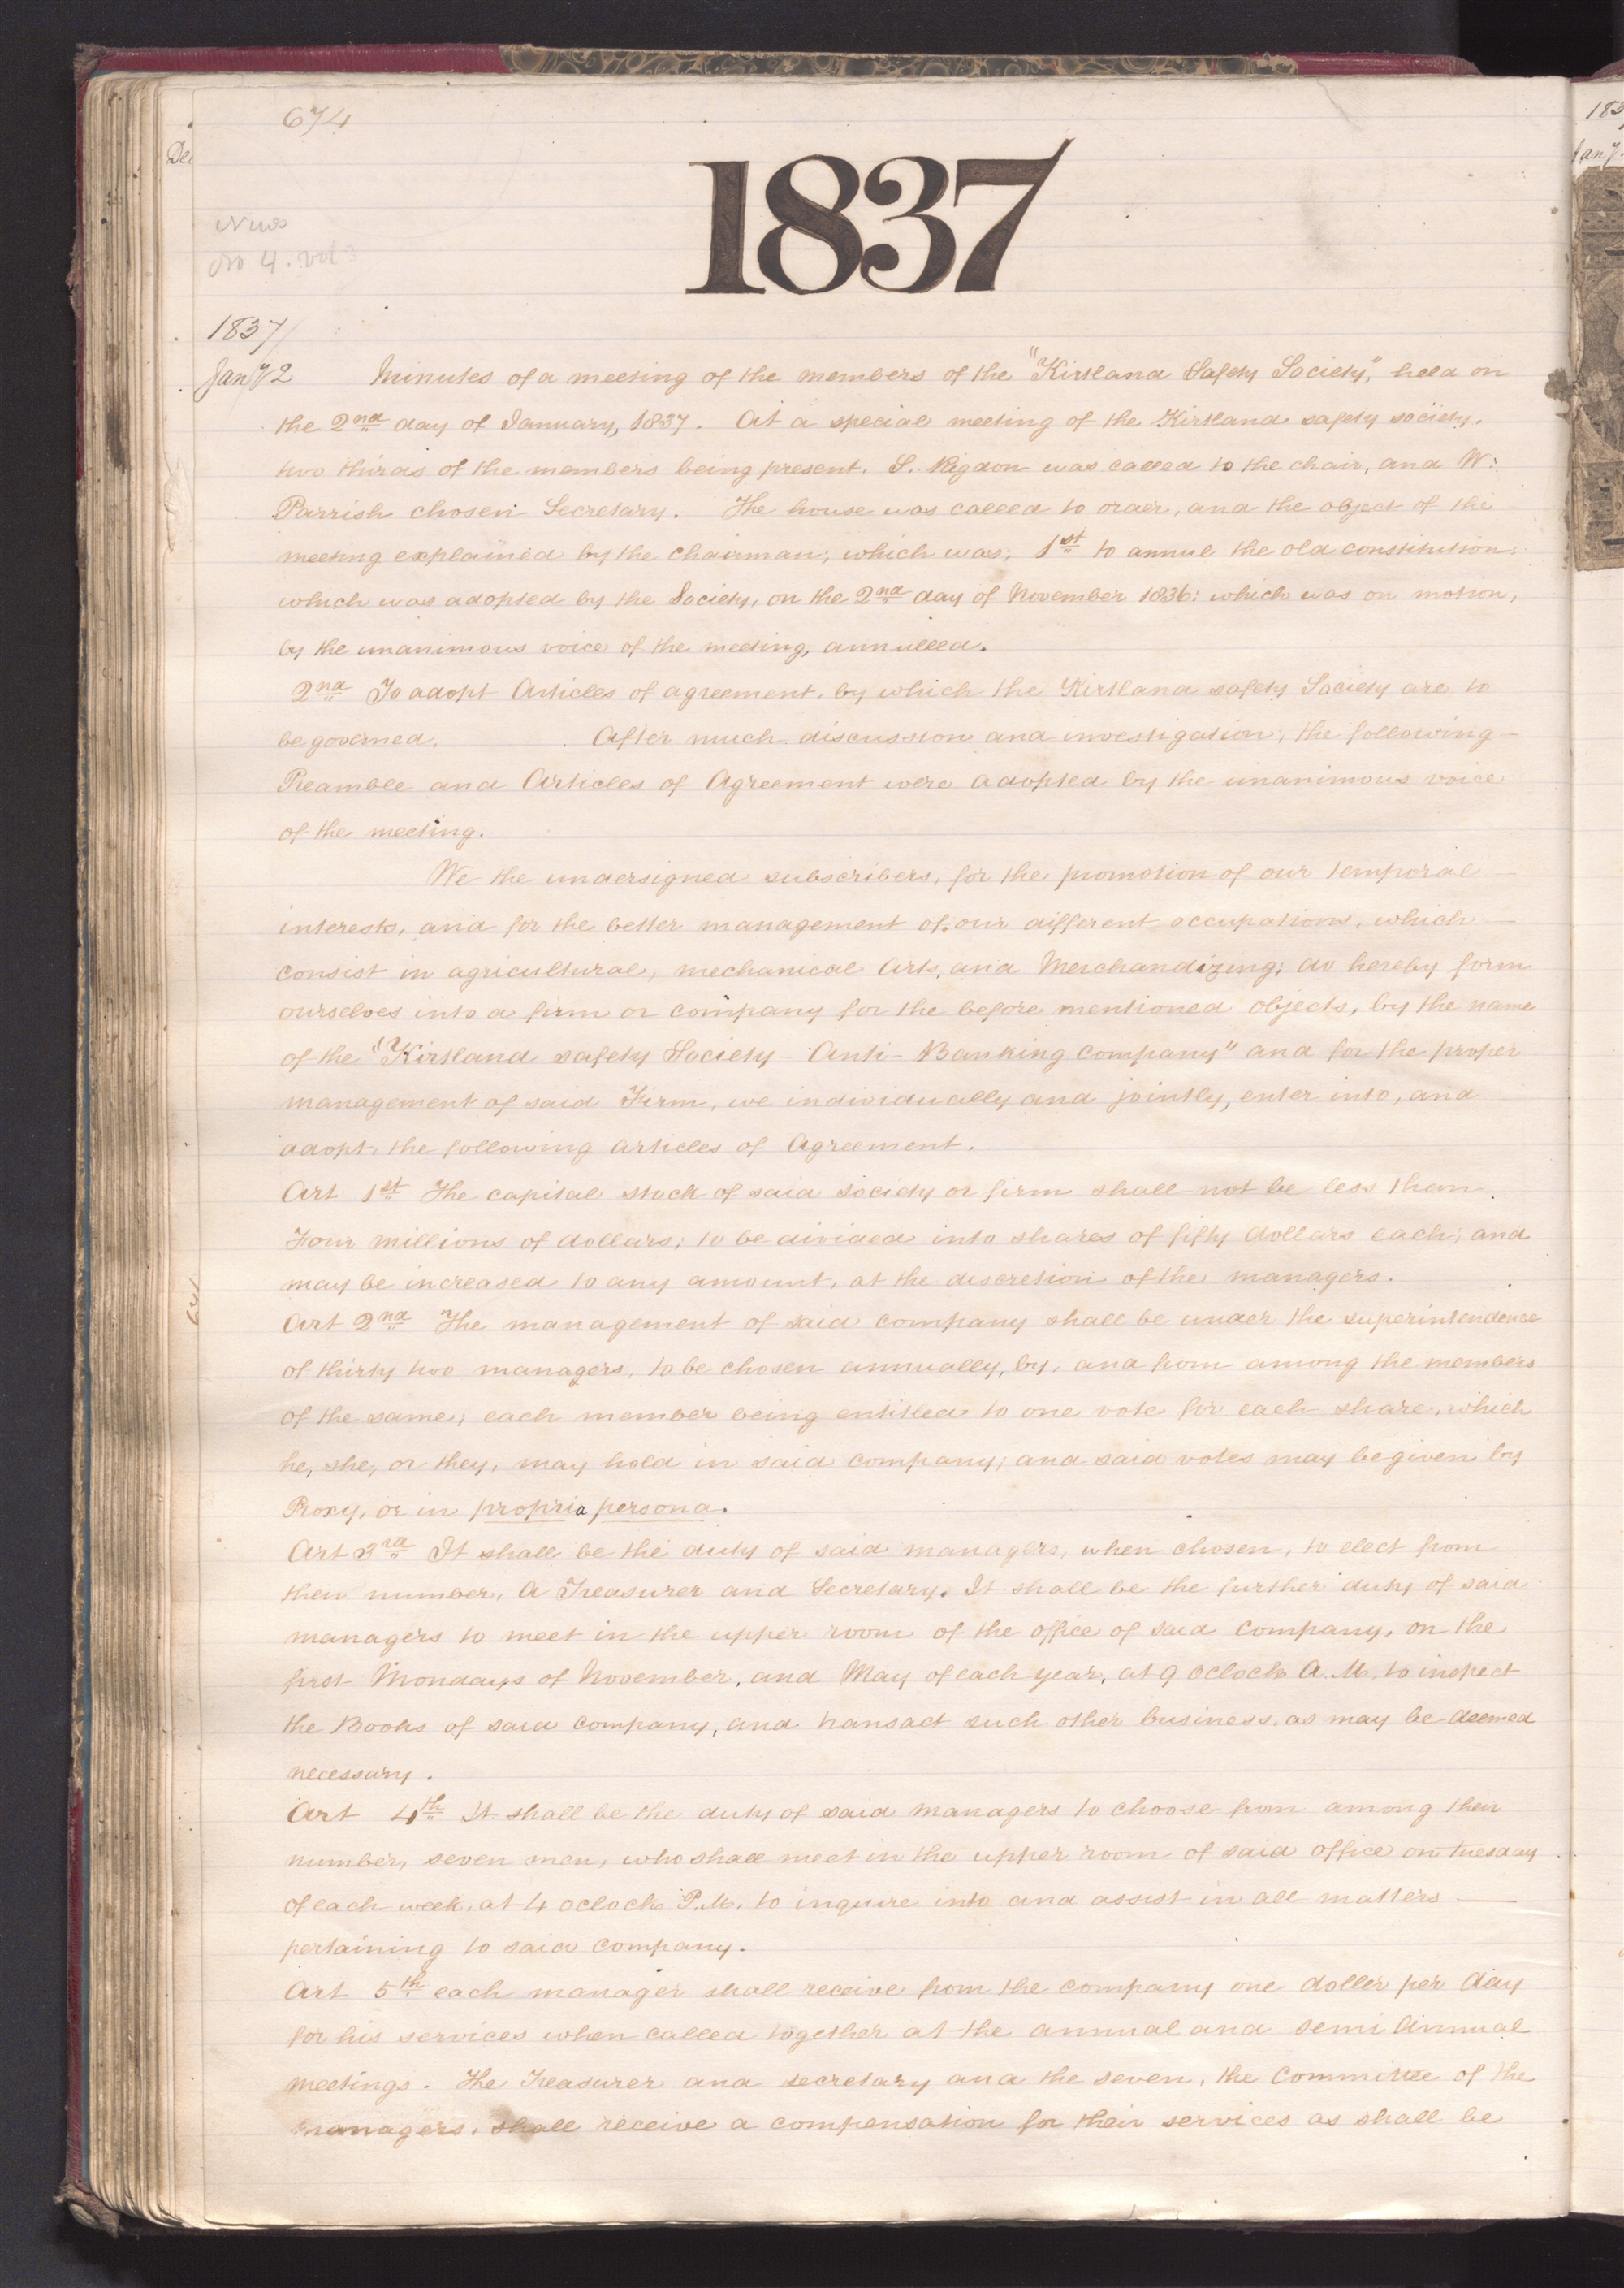 674
1837
News
No 4. vol 3
1837
Jany 2 Minutes of a meeting of the members of the "Kirtland Safety Society," held on
the 2nd day of January, 1837. At a special meeting of the Kirtland safety society.
two thirds of the members being present. S. Rigdon was called to the chair, and W.
Parrish chosen Secretary. The house was called to order, and the object of the
meeting explained by the chairman; which was; 1st to annul the old constitution,
which was adopted by the Society, on the 2nd day of November 1836: which was on motion,
by the unanimous voice of the meeting, annulled.
2nd To adopt Articles of agreement, by which the Kirtland safety Society are to
be governed. After much discussion and investigation, the following
Preamble and Articles of Agreement were adopted by the unanimous voice
of the meeting.
We the undersigned subscribers, for the promotion of our temporal
interests, and for the better management of our different occupations, which
consist in agricultural, mechanical arts, and Merchandizing; do hereby form
ourselves into a firm or company for the before mentioned objects, by the name
of the "Kirtland safety Society Anti-Banking company" and for the proper
management of said Firm, we individually and jointly, enter into, and
adopt, the following articles of Agreement.
Art 1st The capital stock of said society or firm shall not be less than
Four millions of dollars; to be divided into shares of fifty dollars each; and
may be increased to any amount, at the discretion of the managers.
Art 2nd The management of said company shall be under the superintendence
of thirty two managers, to be chosen annually, by, and from among the members
of the same; each member being entitled to one vote for each share, which
he, she, or they, may hold in said company; and said votes may be given by
Proxy, or in propria persona.
Art 3rd It shall be the duty of said managers, when chosen, to elect from
their number, a Treasurer and Secretary. It shall be the further duty of said
managers to meet in the upper room of the office of said company, on the
first Mondays of November, and May of each year, at 9 oclock A.M. to inspect
the Books of said company, and transact such other business, as may be deemed
necessary.
Art 4th It shall be the duty of said managers to choose from among their
number, seven men, who shall meet in the upper room of said office on tuesday
of each week, at 4 oclock P.M. to inquire into and assist in all matters
pertaining to said company.
Art 5th each manager shall receive from the company one doller per day
for his services when called together at the annual and semi annual
meetings. The Treasurer and secretary and the seven, the committee of the
managers, shall receive a compensation for their services as shall be
De
641
183
Jany